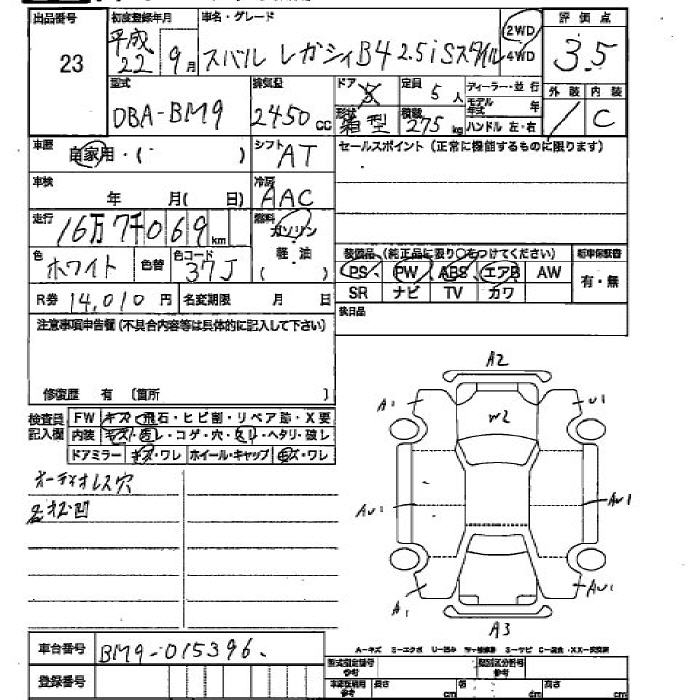 出品番号 初度登録年月 車名・グレード 2WD 評価点
23 平成22 9月 スバル レガシィB4 2.5iSスタイル 4WD 3.5
型式 排気量 ドア 定員 ディーラー・並行 外装 内装
DBA-BM9 2450cc 5人 モデル年式 年
形状 箱型 積載 275kg ハンドル 左・右 1 C
車歴 自家用・( ) シフト AT セールスポイント (正常に機能するものに限ります)
車検 年 月( 日) 冷房 AAC
走行 16万7千069km 燃料 ガソリン 軽・油 ( )
色 ホワイト 色替 色コード 37J
装備品 (純正品に限り○をつけてください) 新車保証書
PS PW ABS エアB AW 有・無
SR ナビ TV カワ
R券 14,010円 名変期限 月 日 後日品
注意事項申告欄 (不具合内容等は具体的に記入して下さい)
修復歴 有 〔箇所 〕
検査員記入欄 FW キズ・飛石・ヒビ割・リペア跡・X要
内装 キズ・汚レ・コゲ・穴・スリ・ヘタリ・破レ
ドアミラー キズ・ワレ ホイール・キャップ キズ・ワレ
オーディオレス穴
A2
A1 W2 U1
AU1 AU1
A1 AU1
A3
A-キズ U-凹み
車台番号 BM9-015396.
登録番号
型式指定番号 参考 類別区分番号 参考
長さ cm 幅 cm 高さ cm